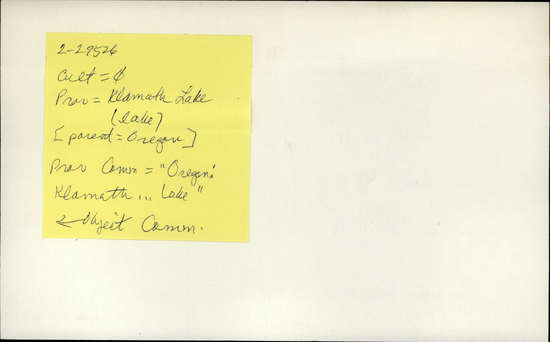 2-29526
Cult = ϕ
Prov = Klamath Lake
(lake)
[parent = Oregon]
Prov Comm = "Oregon:
Klamath ... Lake"
& Object Comm.